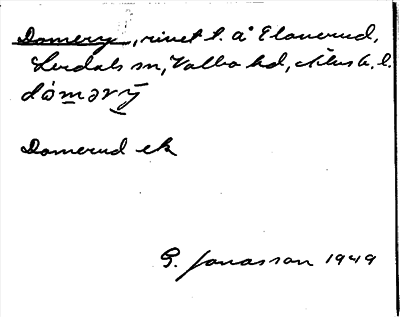 Domery, rivet t. å Elonerud,
Lerdals sn, Valbo hd, Älvsb. l.
dómərȳ
Domerud ek
G. Jonasson 1949